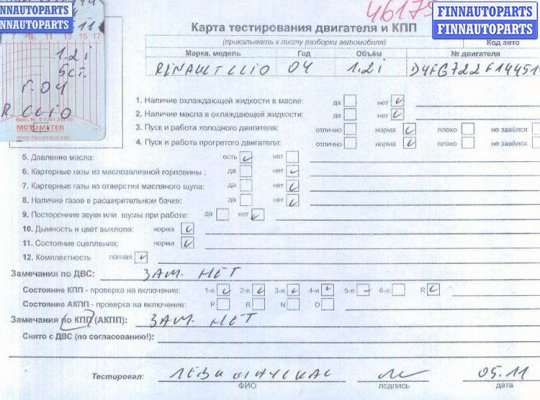 FINNAUTOPARTS
FINNAUTOPARTS
FINNAUTOPARTS
FINNAUTOPARTS
1.2 i
5 ст.
г. 04
R. CLIO
MOTOMETER
Карта тестирования двигателя и КПП
(прикалывать к листу разборки автомобиля)
Код авто
Марка, модель Год Объём № двигателя
RENAULT CLIO 04 1.2 i
1. Наличие охлаждающей жидкости в масле: да нет
2. Наличие масла в охлаждающей жидкости: да нет
3. Пуск и работа холодного двигателя: отлично норма плохо не завёлся
4. Пуск и работа прогретого двигателя: отлично норма плохо не завёлся
5. Давление масла: есть нет
6. Картерные газы из маслозаливной горловины: да нет
7. Картерные газы из отверстия масляного щупа: да нет
8. Наличие газов в расширительном бачке: да нет
9. Посторонние звуки или шумы при работе: да нет
10. Дымность и цвет выхлопа: норма
11. Состояние сцепления: норма
12. Комплектность полная
Замечания по ДВС: ЗАМ. НЕТ
Состояние КПП - проверка на включение: 1-я 2-я 3-я 4-я 5-я 6-я R
Состояние АКПП - проверка на включение: P R N D
Замечания по КПП (АКПП): ЗАМ. НЕТ
Снято с ДВС (по согласованию!):
Тестировал: 05.11
ФИО подпись дата